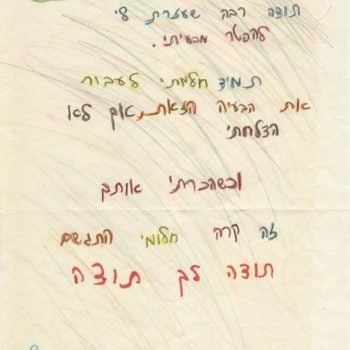 תודה רבה שעזרת לי
להפטר מבעייתי.
תמיד חלמתי לעבור
את הבעיה הזאת, אך לא
הצלחתי
וכשהכרתי אותך
זה קרה חלומי התגשם
תודה לך תודה